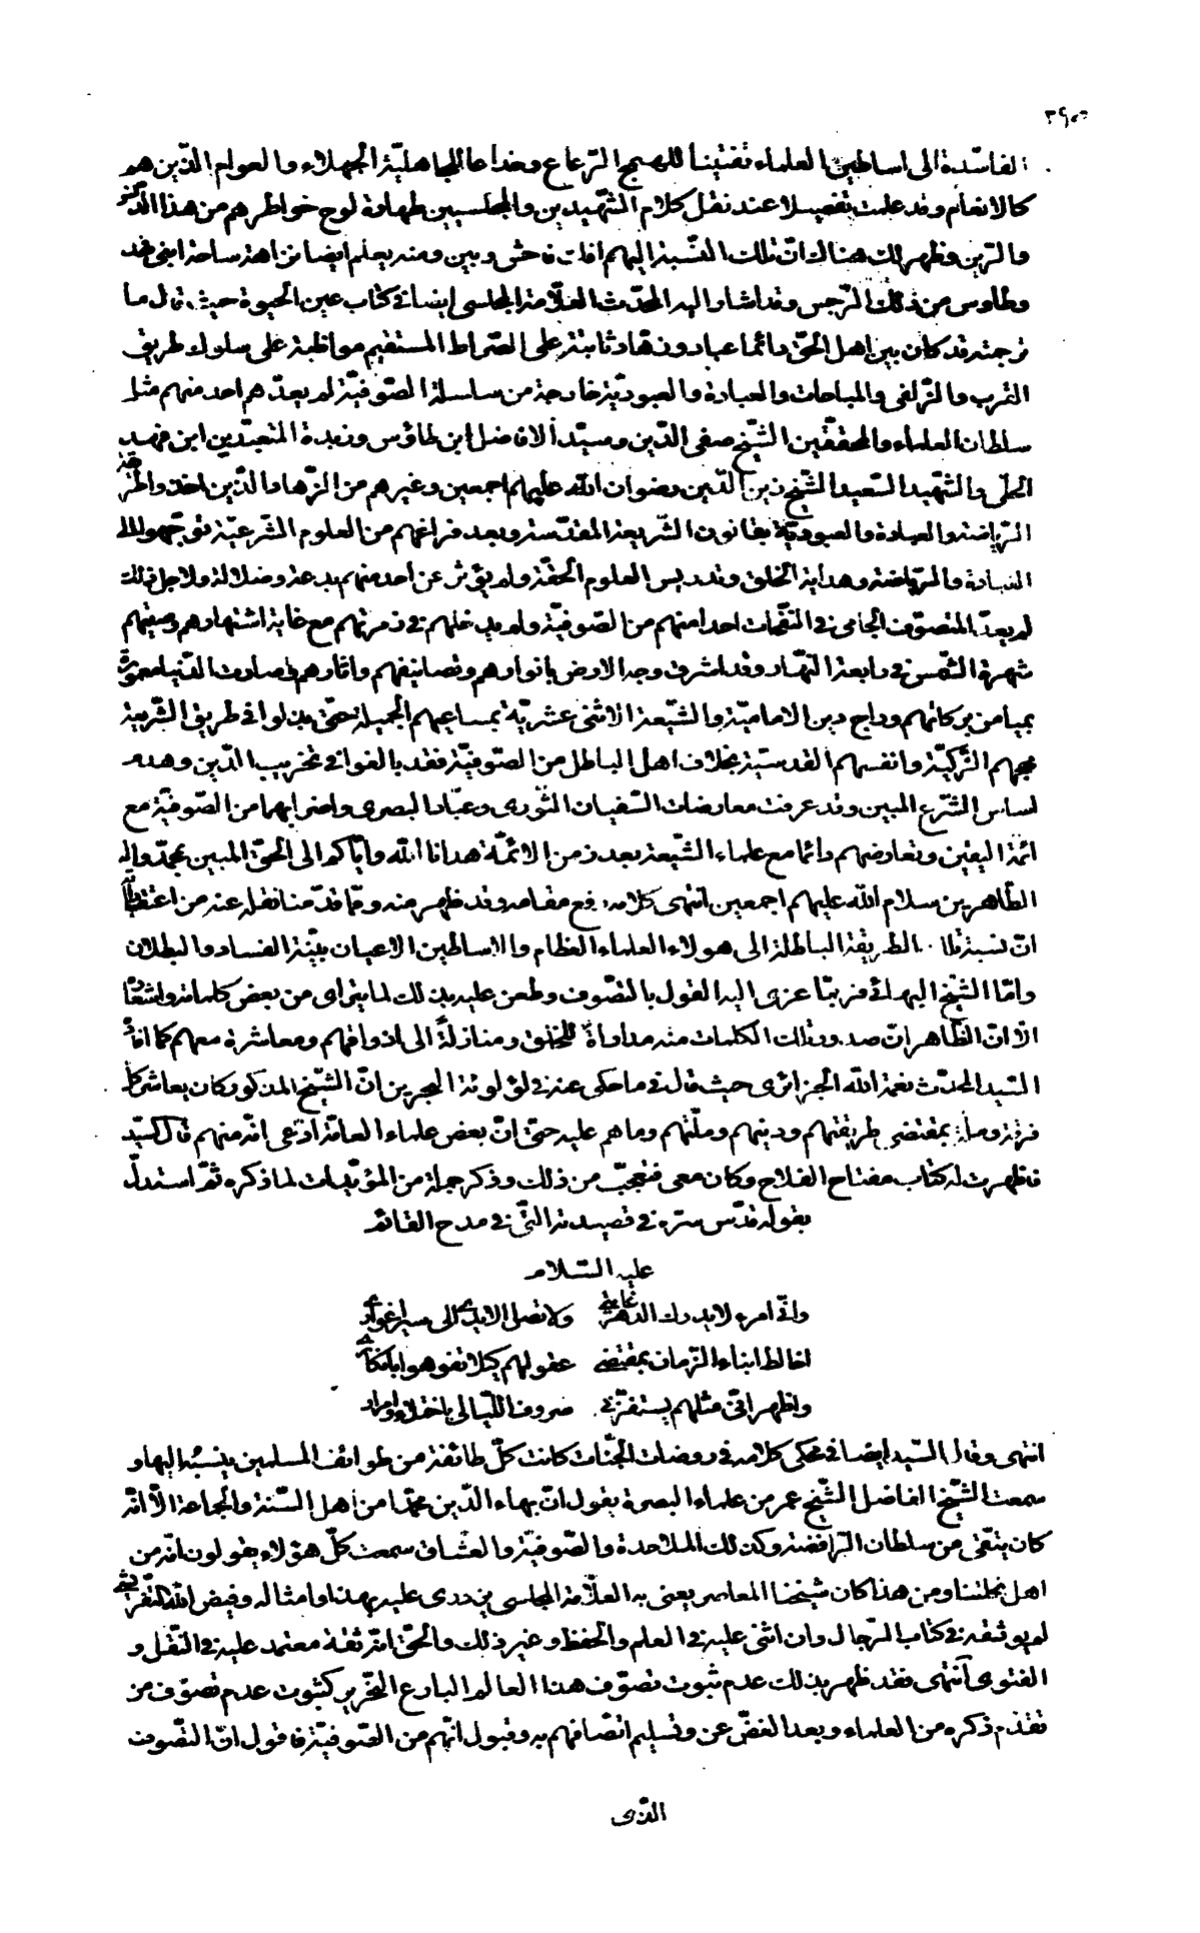 الفاسدة الى اساطين العلماء تفتينا للهمج الرّعاع وخداعا للجاهليّة الجهلاء والعوام الّذين هم
كالانعام وقد علمت تفصيلا عند نقل كلام الشّهيدين والمجلسيين طهارة لوح خواطرهم من هذا الدّنس
والرّين وظهر لك هنالك انّ تلك النّسبة اليهم افك فاحش وبين ومنه يعلم ايضا نزاهة ساحة ابنى فهد
وطاوس من ذلك الرّجس وقد اشار اليه المحدّث العلّامة المجلسى ايضا فى كتاب عين الحيوة حيث قال ما
ترجمته قد كان بين اهل الحقّ دائما عباد وزهّاد ثابتة على الصّراط المستقيم مواظبة على سلوك طريق
القرب والزّلفى والمباحات والعبادة والعبوديّة خارجة من سلسلة الصّوفيّة لم يعدّهم احد منهم مثل
سلطان العلماء والمحقّقين الشّيخ صفى الدّين وسيّد الافاضل ابن طاوس وزبدة المتعبّدين ابن فهد
الحلّى والشّهيد السّعيد الشّيخ زين الدّين رضوان اللّه عليهم اجمعين وغيرهم من الزّهاد الّذين اخذوا طريقة
الرّياضة والعبادة والعبوديّة بقانون الشّريعة المقدّسة وبعد فراغهم من العلوم الشّرعيّة توجّهوا الى
العبادة والرّياضة وهداية الخلق وتدريس العلوم الحقّة ولم يؤثر عن احد منهم بدعة وضلالة ولاجل ذلك
لم يعدّ المتصوّف الجامى فى النّفحات احدا منهم من الصّوفيّة ولم يدخلهم فى زمرتهم مع غاية اشتهارهم وصيتهم
شهرة الشّمس فى رابعة النّهار وقد اشرق وجه الارض بانوارهم وتصانيفهم واثارهم فصارت الدّنيا معمورة
بميامن بركاتهم وراج دين الاماميّة والشّيعة الاثنى عشريّة بمساعيهم الجميلة حتّى بذلوا فى طريق الشّريعة
مهجهم الزّكيّة وانفسهم القدسيّة بخلاف اهل الباطل من الصّوفيّة فقد بالغوا فى تخريب الدّين وهدم
اساس الشّرع المبين وقد عرفت معارضات السّفيان الثّورى وعبّاد البصرى واضرابهما من الصّوفيّة مع
ائمّة اليقين وتعارضهم دائما مع علماء الشّيعة بعد زمن الائمّة هدانا اللّه وايّاكم الى الحقّ المبين بمحمّد واله
الطّاهرين سلام اللّه عليهم اجمعين انتهى كلامه رفع مقامه وقد ظهر منه وممّا قدّمنا نقله عنه من اعتقاداته
انّ نسبة تلك الطريقة الباطلة الى هولاء العلماء العظام والاساطين الاعيان بيّنة الفساد والبطلان
وامّا الشّيخ البهائى فربّما عزى اليه القول بالتّصوف وطعن عليه بذلك لما يترآى من بعض كلماته واشعاره
الّا انّ الظّاهر انّ صدور تلك الكلمات منه مداراة للخلق ومنازلة الى اذواقهم ومعاشرة معهم كما افاده
السّيد المحدّث نعمة اللّه الجزائرى حيث قال فى ما حكى عنه فى لؤلوئة البحرين انّ الشّيخ المذكور كان يعاشر كلّ
فرقة وملّة بمقتضى طريقتهم ودينهم وملّتهم وما هم عليه حتّى انّ بعض علماء العامّة ادّعى انّه منهم قال السيّد
فاظهرت له كتاب مفتاح الفلاح وكان معى فتعجّب من ذلك وذكر جملة من المؤيّدات لما ذكره ثمّ استدلّ
بقوله قدّس سرّه فى قصيدته الّتى فى مدح القائم
عليه السّلام
وانّى امرء لا يدرك الدّهر غايتى ولا تصل الايدى الى سبر اغوارى
اخالط ابناء الزّمان بمقتضى عقولهم كيلا تفوهوا بانكارى
واظهر انّى مثلهم يستفزّنى صروف اللّيالى باختلاء وامرار
انتهى وقال السّيد ايضا فى محكى كلامه فى روضات الجنّات كانت كلّ طائفة من طوائف المسلمين ينسبه اليها و
سمعت الشّيخ الفاضل الشّيخ عمر من علماء البصرة يقول انّ بهاء الدّين محمّدا من اهل السّنة والجماعة الّا انّه
كان يتّقى من سلطان الرّافضة وكذلك الملاحدة والصّوفيّة والعشّاق سمعت كلّ هؤلاء يقولون انّه من
اهل نحلتنا ومن هذا كان شيخنا المعاصر يعنى به العلّامة المجلسى يزدرى عليه بهذا وامثاله وفيض اللّه التّفريشى
لم يوثقه فى كتاب الرّجال وان اثنى عليه فى العلم والحفظ وغير ذلك والحقّ انّه ثقة معتمد عليه فى النّقل و
الفتوى انتهى فقد ظهر بذلك عدم ثبوت تصوّف هذا العالم البارع النّحرير كثبوت عدم تصوّف من
تقدّم ذكره من العلماء وبعد الغضّ عن وتسليم اتّصافهم به وقبول انّهم من الصّوفيّة فاقول انّ التّصوف
الّذى